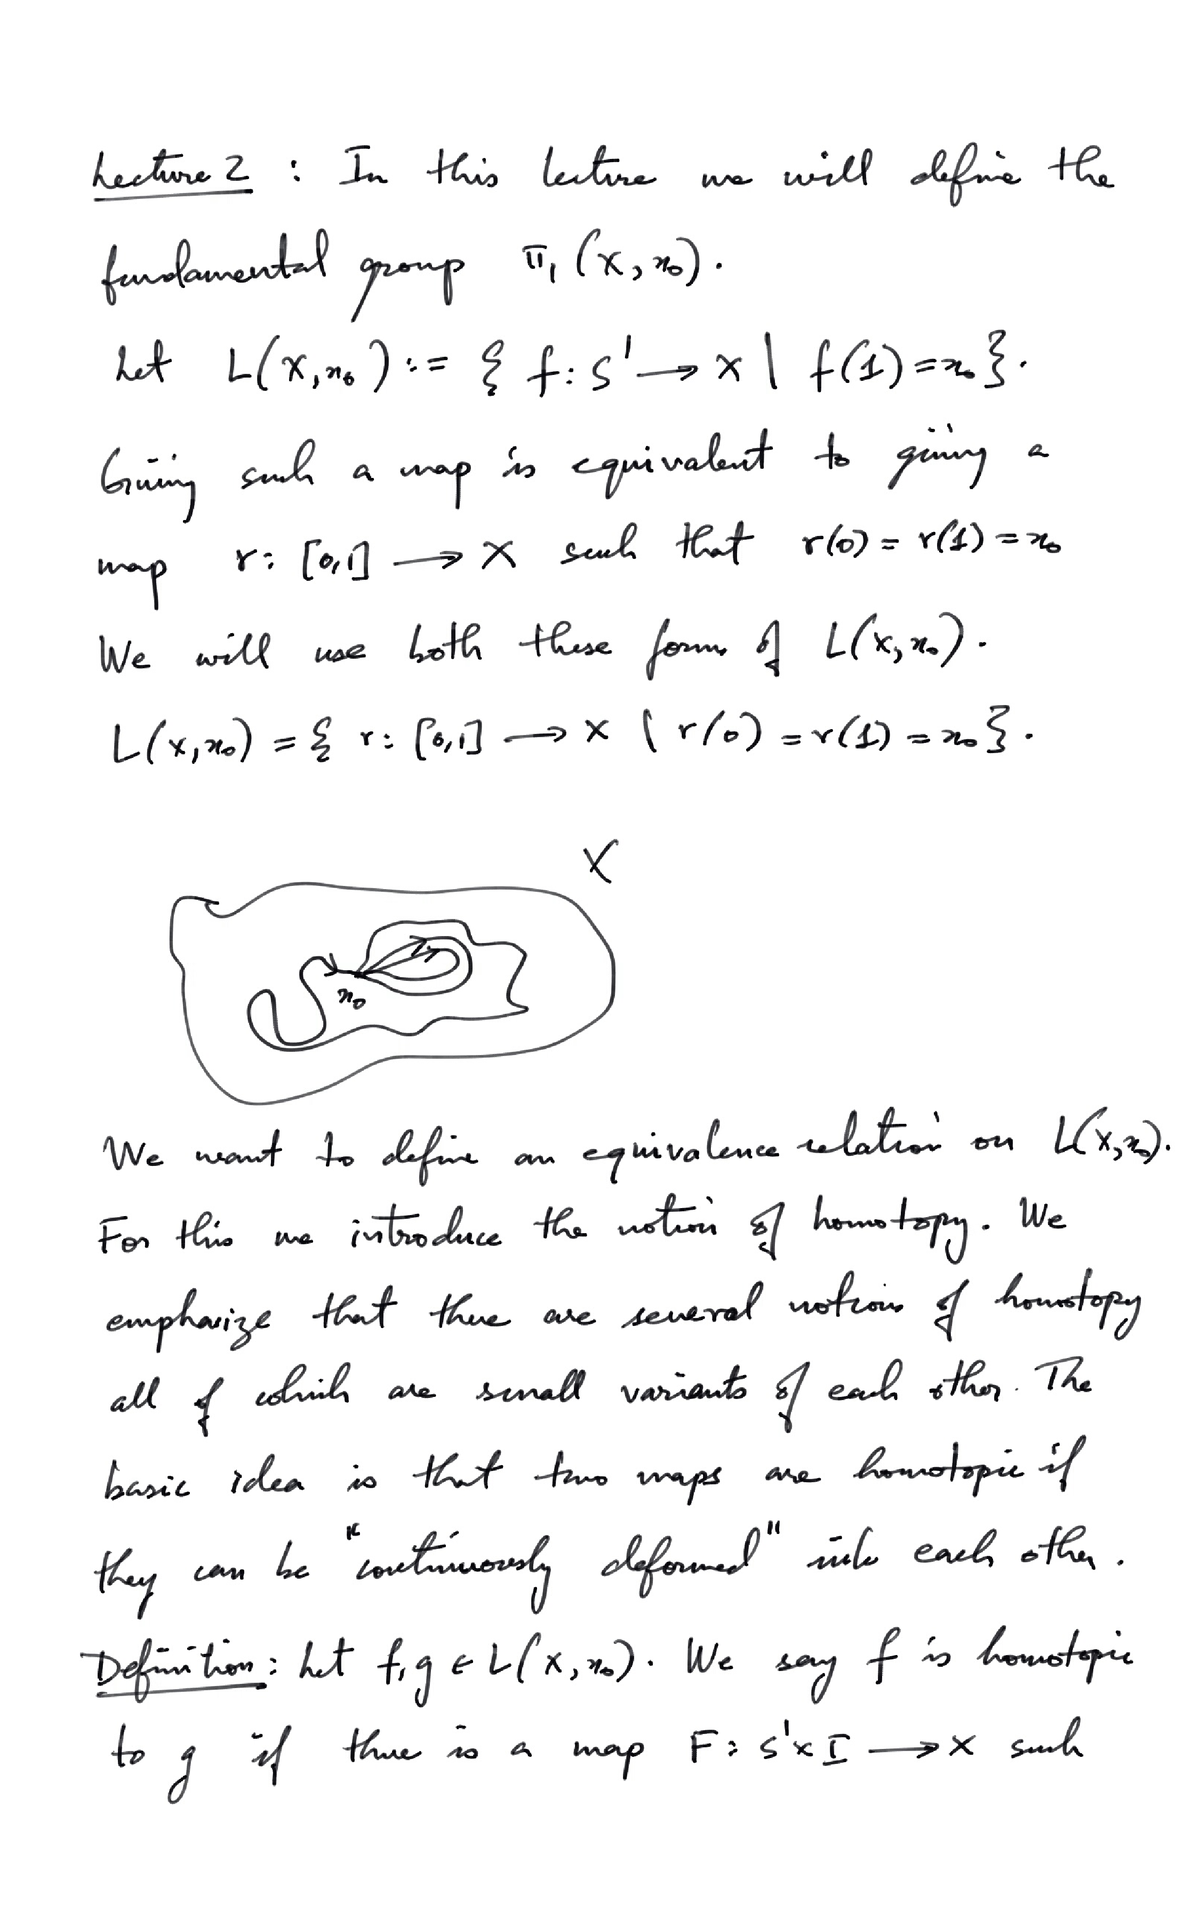 Lecture 2 : In this lecture we will define the
fundamental group π₁(X, x₀).
Let L(X, x₀) := { f: S¹ → X | f(1) = x₀ }.
Giving such a map is equivalent to giving a
map r: [0,1] → X such that r(0) = r(1) = x₀
We will use both these forms of L(X, x₀).
L(X, x₀) = { r: [0,1] → X | r(0) = r(1) = x₀ }.
X
x₀
We want to define an equivalence relation on L(X, x₀).
For this we introduce the notion of homotopy. We
emphasize that there are several notions of homotopy
all of which are small variants of each other. The
basic idea is that two maps are homotopic if
they can be "continuously deformed" into each other.
Definition: Let f, g ∈ L(X, x₀). We say f is homotopic
to g if there is a map F: S¹×I → X such